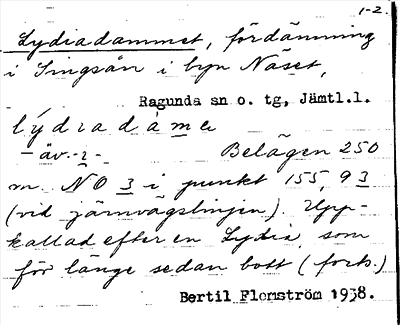 1-2.
Lydiadammet, fördämning
i Singsån i byn Näset,
Ragunda sn o. tg, Jämtl.l.
lýdıadàme
- äv. -ı-. Belägen 250
m. NO 3 i punkt 155, 93
(vid järnvägslinjen). Upp-
kallad efter en Lydia, som
för länge sedan bott (forts.)
Bertil Flemström 1938.